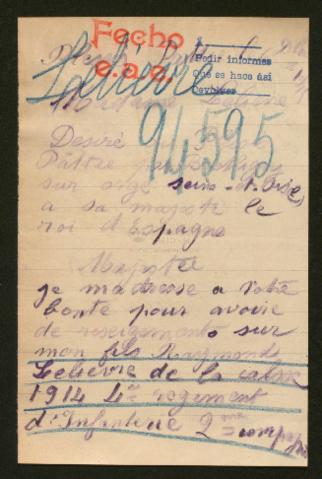 Fecho
e.a.e.
A
Pedir informes
Que se hace ási
Devolver
Lelievre
Madame Lelievre
94,595
Desiré
Pâttre
sur orge seine et Oise
a sa majeste le
roi d'Espagne
Majesteé
je madresse a votre
bonte pour avoire
de renseigements sur
mon fils Raymonds
Lelievre de la calsse
1914 4me regement
d'Infanterie 2me compagni